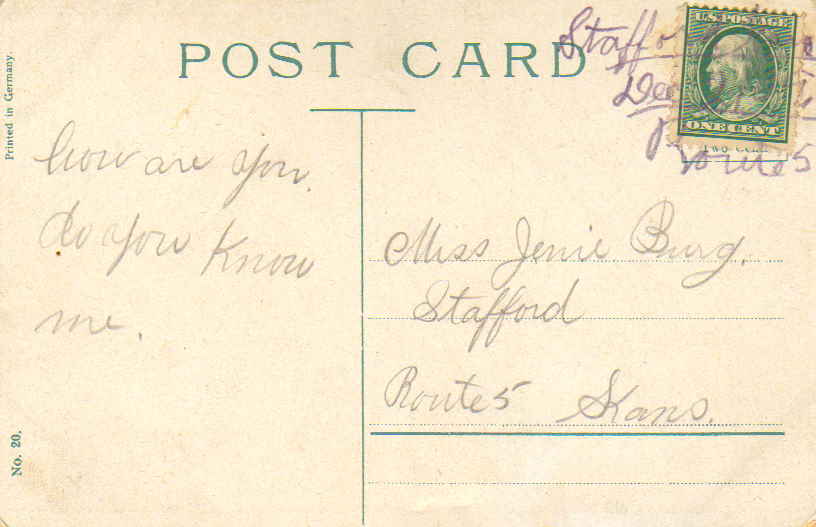 POST CARD
Printed in Germany.
Stafford
Dec
Route 5
U.S. POSTAGE
ONE CENT
how are you.
do you know
me.
Miss Jenie Burg.
Stafford
Route 5 Kans.
No. 20.